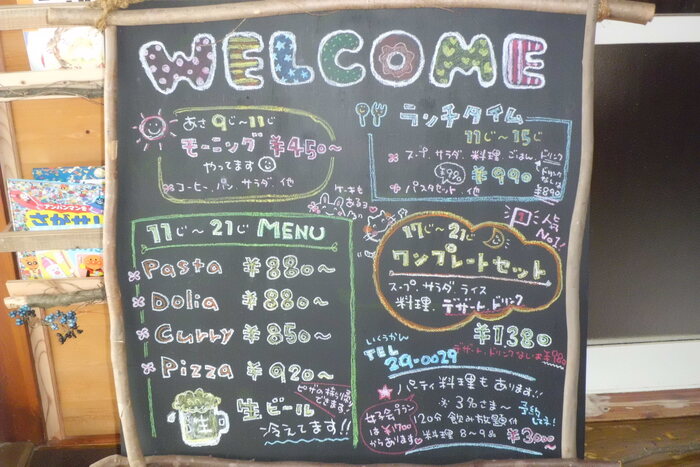 WELCOME
あさ 9じ～11じ
モーニング ¥450～
やってます
※コーヒー、パン サラダ 他
ランチタイム
11じ～15じ
※ スープ、サラダ、料理、ごはん、ドリンク
¥990
ドリンク
なしは
¥890
※ パスタセット 他
ケーキも
あるョ
11じ～21じ MENU
※ Pasta ¥880～
※ Dolia ¥880～
※ Curry ¥850～
※ Pizza ¥920～
ピザの持り帰り
できます!
生
生ビール
冷えてます!!
人気
No1!
17じ～21じ
ワンプレートセット
スープ、サラダ、ライス
料理、デザート、ドリンク
¥1380
デザート、ドリンクなしは¥980
いくうかん
TEL
29-0029
パーティ料理もあります!!
※ 3名さま～ 予約
してネ!
120分 飲み放題付
料理 8～9品 ¥3,000～
女子会プラン
は¥1700
からあります
アンパンマン